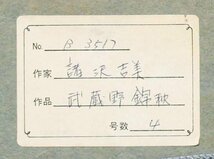 No. B 3517
作家 諸沢吉美
作品 武蔵野錦秋
号数 4